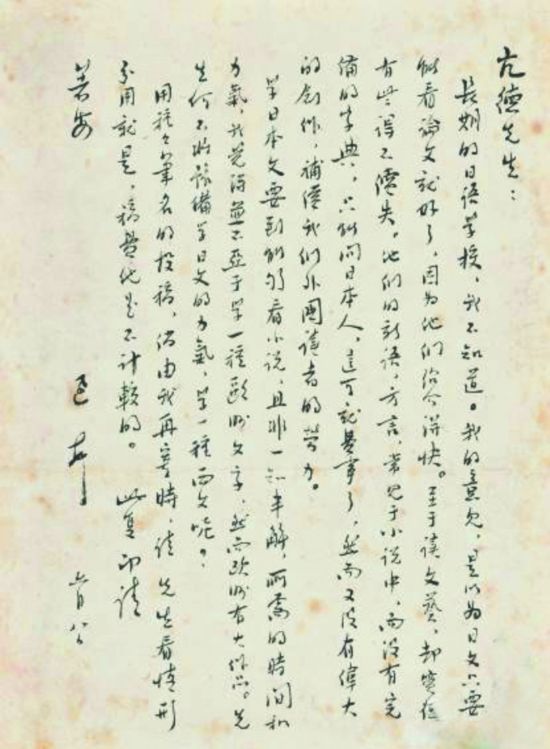 亢德先生：
長期的日语學校，我不知道。我的意见，是以为日文只要
能看論文就好了，因为他们绍介得快。至于读文艺，却實在
有些得不償失。他们的新语，方言，常见于小说中，而没有完
備的字典，只能问日本人，这可就费事了，然而又没有偉大
的創作，補償我们外國读者的勞力。
学日本文要到能够看小说，且非一知半解，所需的时间和
力氣，我觉得並不亚于学一種歐洲文字，然而欧洲有大作品。先
生何不将豫備学日文的力氣，学一種西文呢？
用種々筆名的投稿，倘由我再寄時，请先生看情形
分用就是，稿費他是不计較的。 此复即请
著安
迅 六月八日